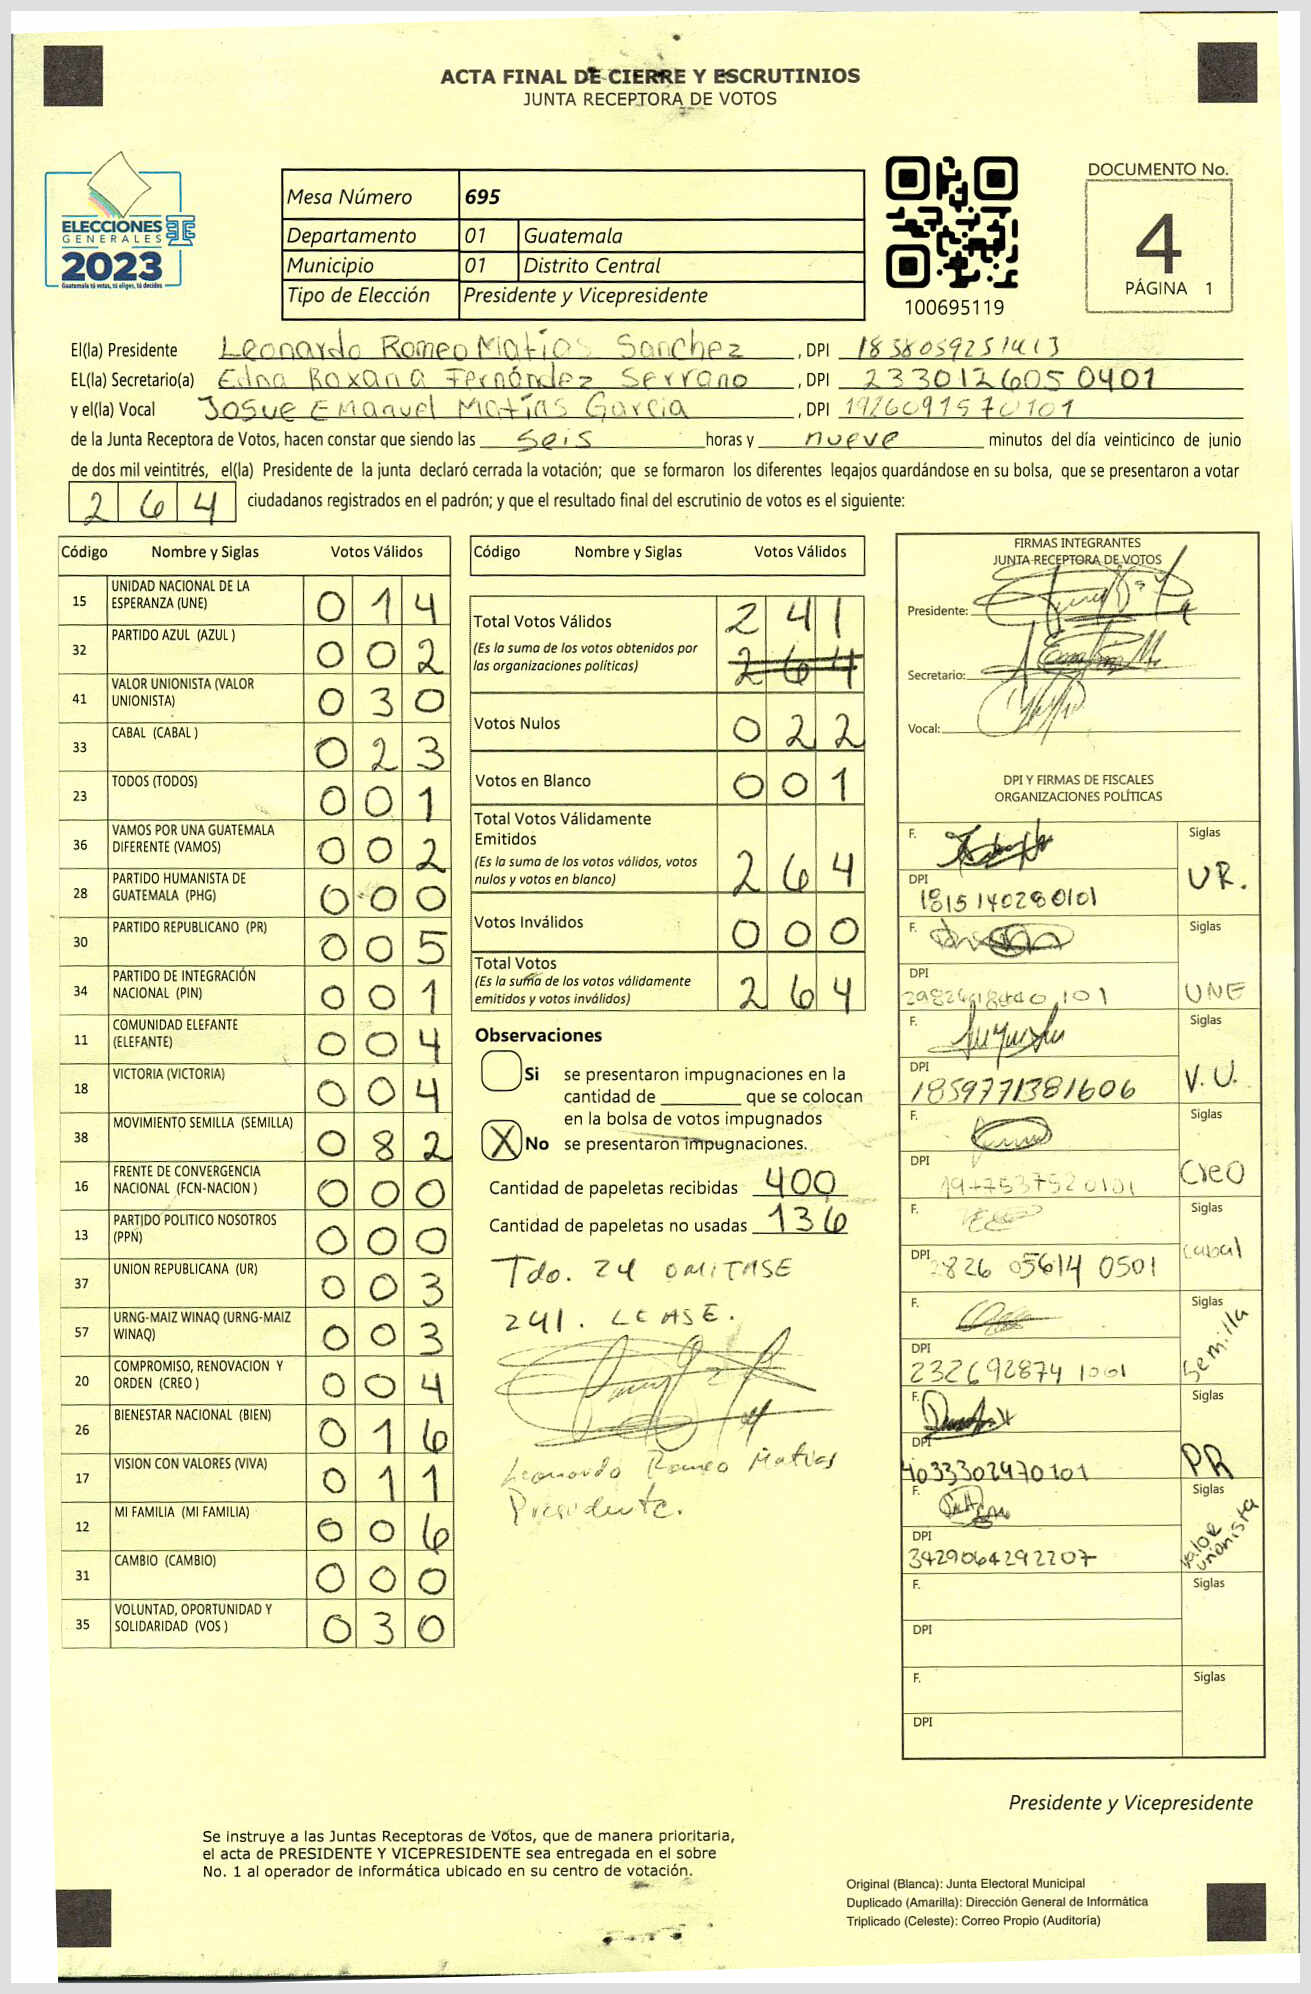 ACTA FINAL DE CIERRE Y ESCRUTINIOS
JUNTA RECEPTORA DE VOTOS
ELECCIONES
GENERALES
2023
Guatemala tú votas, tú eliges, tú decides
Mesa Número 695
Departamento 01 Guatemala
Municipio 01 Distrito Central
Tipo de Elección Presidente y Vicepresidente
100695119
DOCUMENTO No.
4
PÁGINA 1
El(la) Presidente Leonardo Romeo Matías Sanchez, DPI 1858059251413
EL(la) Secretario(a) Edna Roxana Fernández Serrano, DPI 2330126050401
y el(la) Vocal Josue Emanuel Matías Garcia, DPI 1926091570101
de la Junta Receptora de Votos, hacen constar que siendo las seis horas y nueve minutos del día veinticinco de junio
de dos mil veintitrés, el(la) Presidente de la junta declaró cerrada la votación; que se formaron los diferentes legajos guardándose en su bolsa, que se presentaron a votar
264 ciudadanos registrados en el padrón; y que el resultado final del escrutinio de votos es el siguiente:
Código Nombre y Siglas Votos Válidos
15 UNIDAD NACIONAL DE LA ESPERANZA (UNE) 014
32 PARTIDO AZUL (AZUL ) 002
41 VALOR UNIONISTA (VALOR UNIONISTA) 030
33 CABAL (CABAL ) 023
23 TODOS (TODOS) 001
36 VAMOS POR UNA GUATEMALA DIFERENTE (VAMOS) 002
28 PARTIDO HUMANISTA DE GUATEMALA (PHG) 000
30 PARTIDO REPUBLICANO (PR) 005
34 PARTIDO DE INTEGRACIÓN NACIONAL (PIN) 001
11 COMUNIDAD ELEFANTE (ELEFANTE) 004
18 VICTORIA (VICTORIA) 004
38 MOVIMIENTO SEMILLA (SEMILLA) 082
16 FRENTE DE CONVERGENCIA NACIONAL (FCN-NACION ) 000
13 PARTIDO POLITICO NOSOTROS (PPN) 000
37 UNION REPUBLICANA (UR) 003
57 URNG-MAIZ WINAQ (URNG-MAIZ WINAQ) 003
20 COMPROMISO, RENOVACION Y ORDEN (CREO ) 004
26 BIENESTAR NACIONAL (BIEN) 016
17 VISION CON VALORES (VIVA) 011
12 MI FAMILIA (MI FAMILIA) 006
31 CAMBIO (CAMBIO) 000
35 VOLUNTAD, OPORTUNIDAD Y SOLIDARIDAD (VOS ) 030
Código Nombre y Siglas Votos Válidos
Total Votos Válidos 241
(Es la suma de los votos obtenidos por
las organizaciones políticas) 264
Votos Nulos 022
Votos en Blanco 001
Total Votos Válidamente
Emitidos
(Es la suma de los votos válidos, votos
nulos y votos en blanco) 264
Votos Inválidos 000
Total Votos
(Es la suma de los votos válidamente
emitidos y votos inválidos) 264
Observaciones
Si se presentaron impugnaciones en la
cantidad de ________ que se colocan
en la bolsa de votos impugnados
X No se presentaron impugnaciones.
Cantidad de papeletas recibidas 400
Cantidad de papeletas no usadas 136
Tdo. 24 OMITASE
241. LEASE.
Leonardo Romeo Matias
Presidente.
FIRMAS INTEGRANTES
JUNTA RECEPTORA DE VOTOS
Presidente:
Secretario:
Vocal:
DPI Y FIRMAS DE FISCALES
ORGANIZACIONES POLÍTICAS
F. Siglas
DPI UR.
1815140280101
F. Siglas
DPI UNE
F. Siglas
DPI V.U.
1859771381606
F. Siglas
DPI Creo
F. Siglas
DPI 2826 05614 0501 cabal
F. Siglas
DPI Semilla
232692874 1001
F. Siglas
DPI PR
4033302470101
F. Siglas
DPI Valor unionista
3429064292207
F. Siglas
DPI
F. Siglas
DPI
Presidente y Vicepresidente
Se instruye a las Juntas Receptoras de Votos, que de manera prioritaria,
el acta de PRESIDENTE Y VICEPRESIDENTE sea entregada en el sobre
No. 1 al operador de informática ubicado en su centro de votación.
Original (Blanca): Junta Electoral Municipal
Duplicado (Amarilla): Dirección General de Informática
Triplicado (Celeste): Correo Propio (Auditoría)